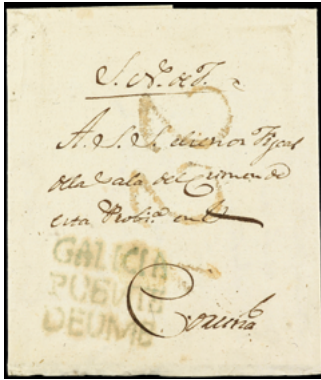 S. N. de S.
A. S. S. el señor Fiscal
de la Sala del Crimen de
esta Probi.ª en el
GALICIA
PUENTE
DEUME
Coruña